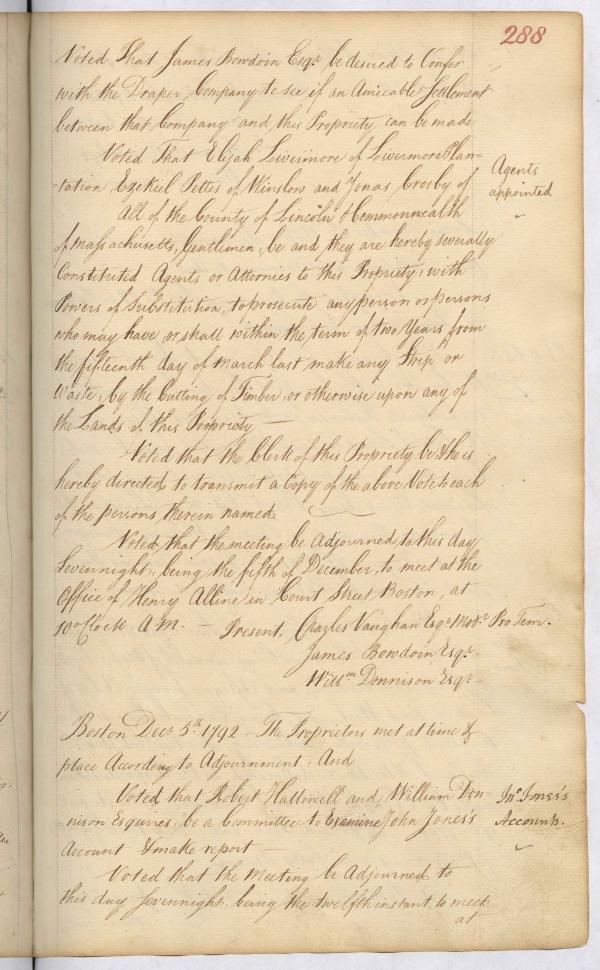 288
Voted That James Bowdoin Esqr. be desired to Confer
with the Draper Company to see if an Amicable Settlement
between that Company and this Propriety can be made
Voted That Elijah Livermore of Livermore Plan=
Agents
appointed
-tation Ezekiel Pettes of Winslow and Jonas Crosby of
All of the County of Lincoln & Commonwealth
of Massachusetts, Gentlemen, be and they are hereby severally
Constituted Agents or Attornies to this Propriety, with
Powers of Substitution, to prosecute any person or persons
who may have, or shall within the term of two Years from
the fifteenth day of March last make any Strip or
Waste, by the Cutting of Timber, or otherwise upon any of
the Lands of this Propriety —
Voted that the Clerk of this Propriety be & he is
hereby directed to transmit a Copy of the above Vote to each
of the persons therein named
Voted that the meeting be Adjourned to this day
Sevennight, being the fifth of December, to meet at the
Office of Henry Alline in Court Street, Boston, at
10 o'Clock A.M. — Present, Charles Vaughan Esqr. Modr. Pro Tem.
James Bowdoin Esqr.
Willm Dennison Esqr —
Boston Decr 5th 1792 — The Proprietors met at time &
place According to Adjournment, And
Voted that Robert Hallowell and William Den-
Jno. Jones's
Accounts.
-nison Esquires, be a Committee to Examine John Jones's
Account & make report —
Voted that the Meeting be Adjourned to
this day Sevennight, being the twelfth instant, to meet
at